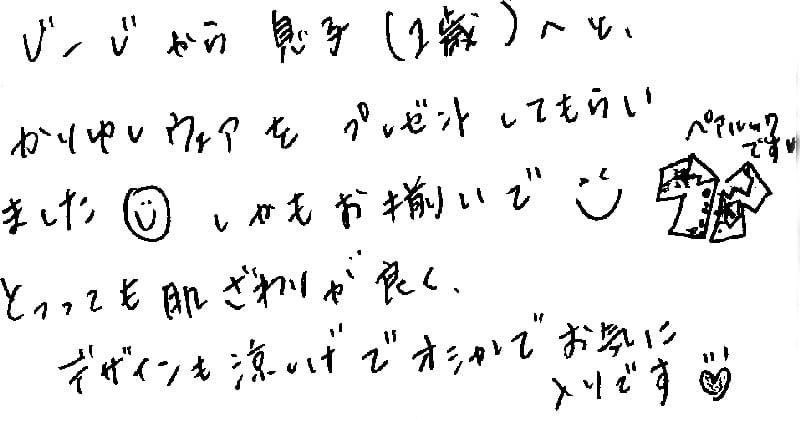 ジージから 息子(1歳)へと、
かりゆしウェアを プレゼントしてもらい
ました しかもお揃いで
ペアルック
です
とっっても肌ざわりが良く、
デザインも涼しげでオシャレでお気に
入りです